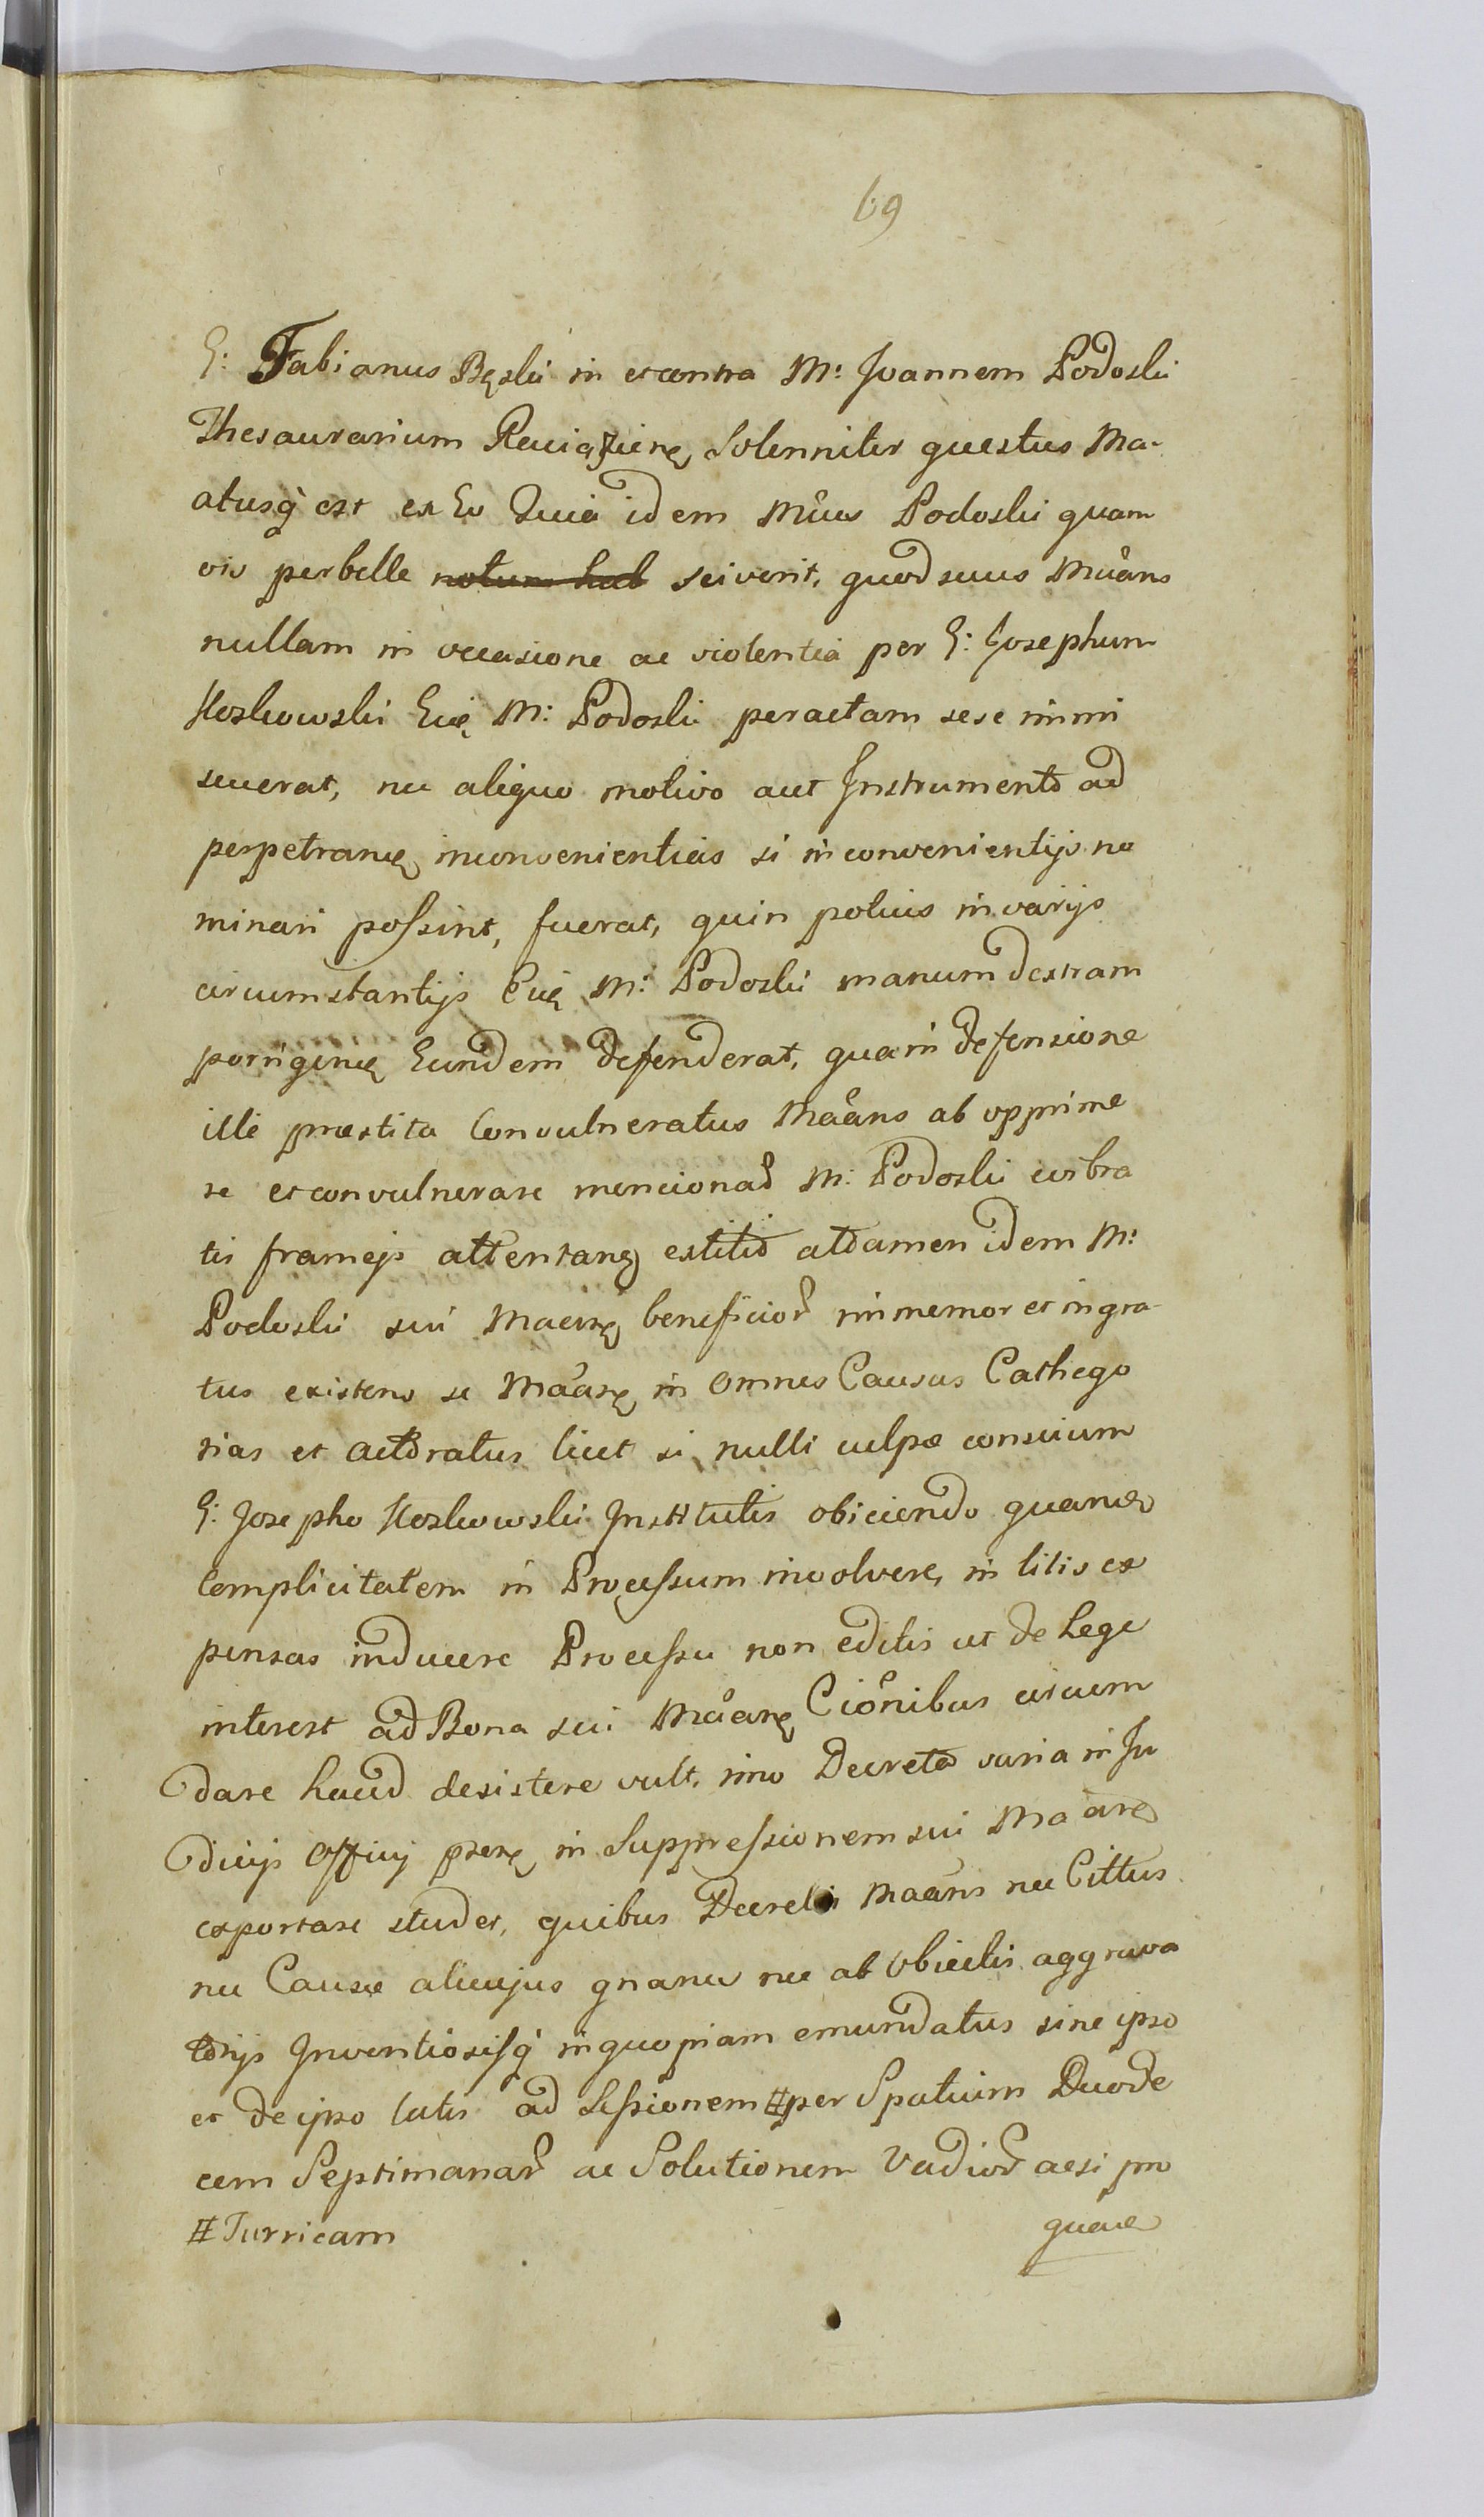 69
G: Fabianus Bęski in et contra M: Joannem Podoski
Thesaurarium Solenniter questus Ma-
atusq̀ est ex Eo Quia idem Mcus Podoski quam
vis perbelle notum hab sciverit, quod suus Maans
nullam in occasione ac violentia per G: Josephum
Koskowski M: Podoski peractam sese immi
scuerat, nec aliquo motivo aut Instrumento ad
inconvenientias si inconvenientijs no
minari possint, fuerat, quin potius in varijs
circumstantijs M: Podoski manum dextram
Eundem defenderat, qua in defensione
illi præstita Convulneratus Maans ab opprime
re et convulnerare mencionať M: Podoski cu vibra
tis framejs extitit attamen idem M:
Podoski sui beneficioř immemor et ingra-
tus existens se in omnes Causas Cathego
rias et actoratus licet si nulli culpæ conscium
G: Josepho Koskowski Institutis obiciendo
Complicitatem in Processum involvere, in litis ex
pensas inducere Processu non editis ut de Lege
interest ad Bona sui Ciõnibus circum
dare haud desistere vult, imo Decreta varia in Ju
dicijs Officij in Suppressionem sui
exportare studet, quibus Decretis Maans nec Cittus
nec Causæ alicujus gnarus nec ab Obiectis aggrava
torijs Inventiosisq̀ in quopiam emundatus sine ipso
et de ipso latis ad Sessionem # per Spatium Duode
cem Septimanař ac Solutionem Vadioř acsi pro
# Turricam